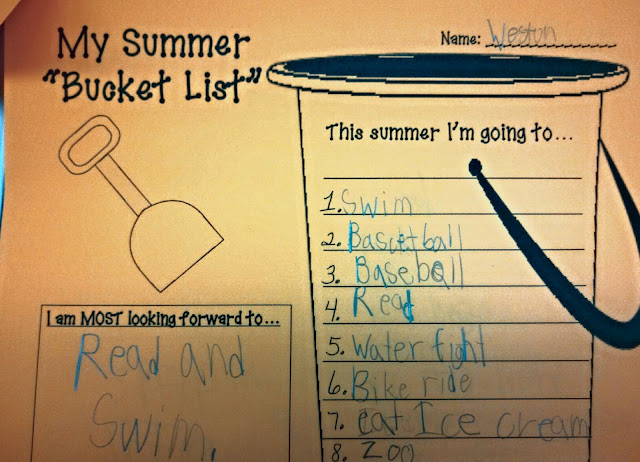 My Summer
"Bucket List"
Name: Weston
This summer I'm going to...
1. Swim
2. Bascetball
3. Baseball
4. Read
5. Water fight
6. Bike ride
7. eat Ice cream
8. Zoo
I am MOST looking forward to...
Read and
Swim.